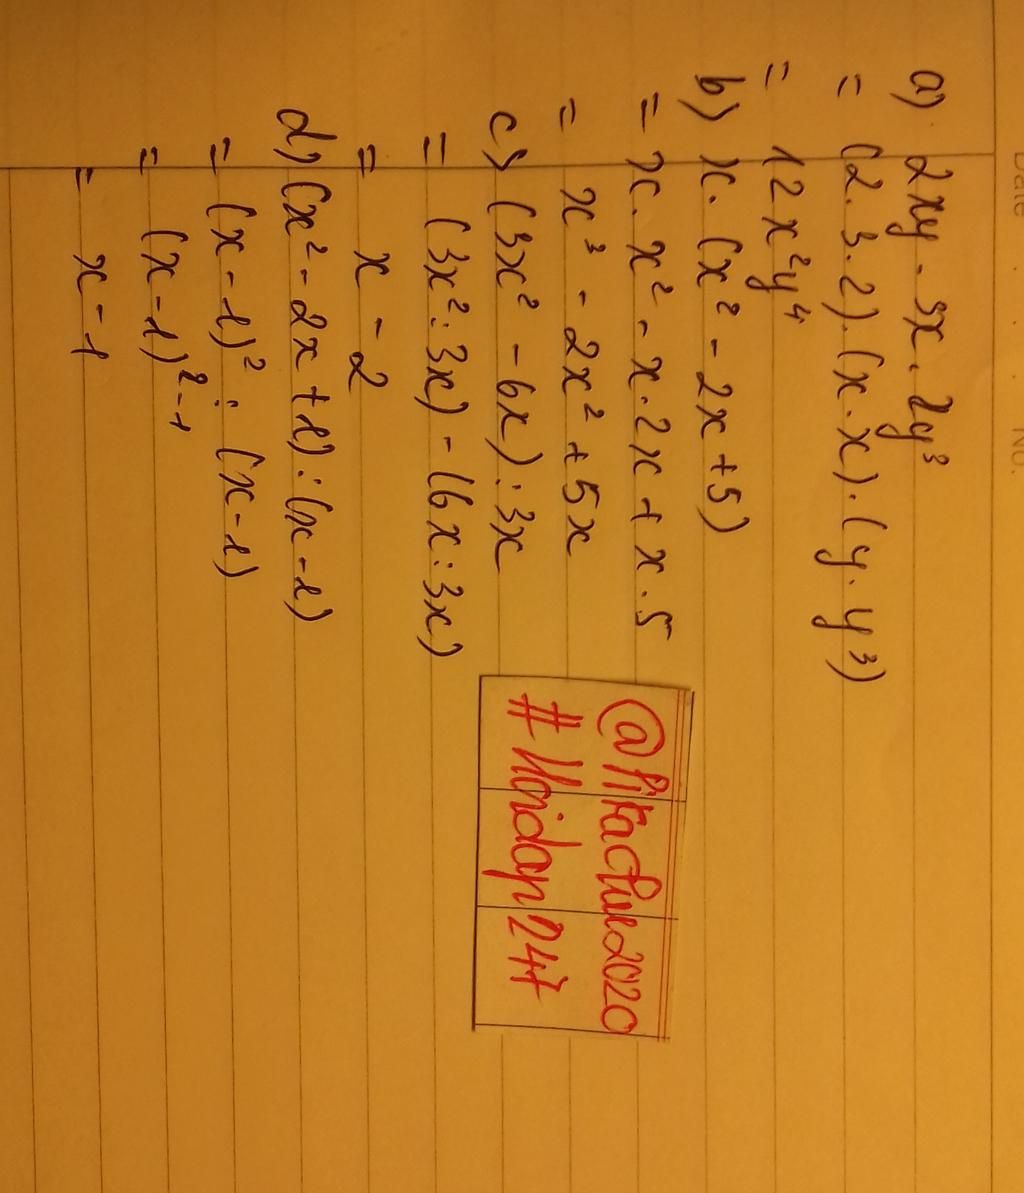 Date No.
a) 2xy - 3x . 2y³
= (2 . 3 . 2) . (x . x) . (y . y³)
= 12x²y⁴
b) x . (x² - 2x + 5)
= x . x² - x . 2x + x . 5
= x³ - 2x² + 5x
c) (3x² - 6x) : 3x
= (3x² : 3x) - (6x : 3x)
= x - 2
d) (x² - 2x + 1) : (x - 1)
= (x - 1)² : (x - 1)
= (x - 1)²⁻¹
= x - 1
@Pikachue2020
#Hoidap247